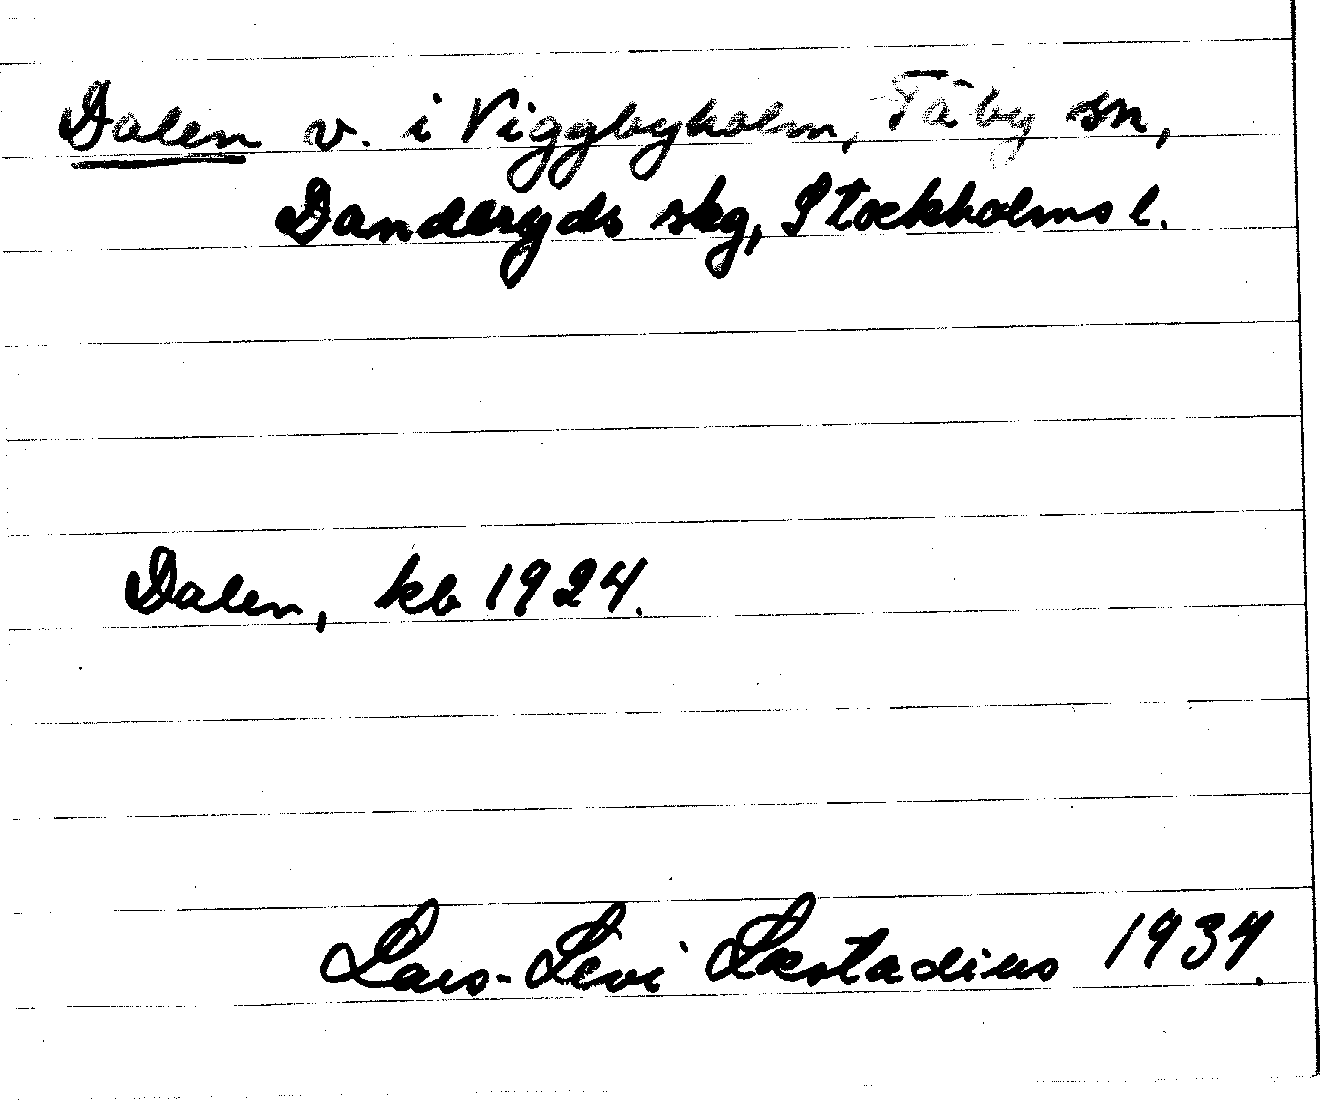 Dalen v. i Viggbyholm, Täby sn,
Danderyds skg, Stockholms l.
Dalen, kb 1924.
Lars-Levi Læstadius 1934.